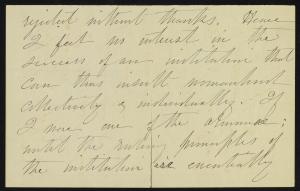 rejected without thanks. Hence
I feel no interest in the
success of an institution that
can thus insult womanhood
collectively & individually. If
I were one of the alumnae;
until the ruling principles of
the institution are essentially